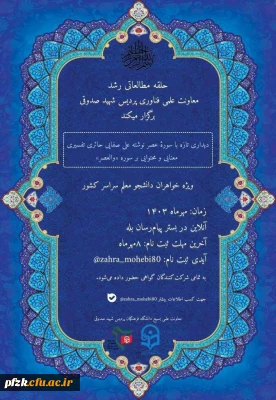 حلقه مطالعاتی رشد
معاونت علمی فناوری پردیس شهید صدوقی
برگزار میکند
دیداری تازه با سورهٔ عصر نوشته علی صفایی حائری تفسیری
معنایی و محتوایی بر سوره «والعصر»
ویژه خواهران دانشجو معلم سراسر کشور
زمان: مهرماه ۱۴۰۳
آنلاین در بستر پیام‌رسان بله
آخرین مهلت ثبت نام: ۸مهرماه
آیدی ثبت نام: zahra_mohebi80@
به تمامی شرکت‌کنندگان گواهی حضور داده می‌شود.
جهت کسب اطلاعات بیشتر zahra_mohebi80@
معاونت علمی بسیج دانشگاه فرهنگیان پردیس شهید صدوقی
pfzk.cfu.ac.ir